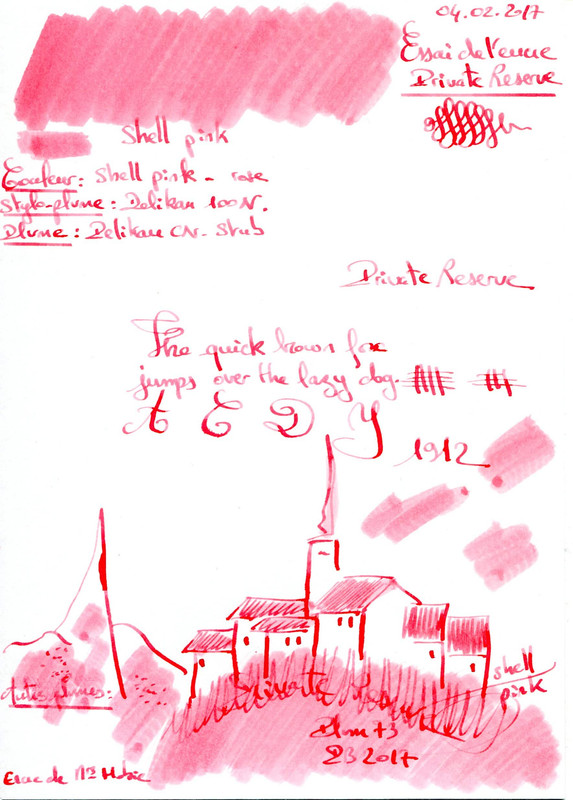 04.02.2017
Essai de l'encre
Private Reserve
Shell pink
Couleur : Shell pink - rose
Stylo-plume : Pelikan 100N.
Plume : Pelikan CN. Stub
Private Reserve
The quick brown fox
jumps over the lazy dog.
A E D Y
1912
shell
pink
Autres plumes :
Private
Plum
2017
Encre de